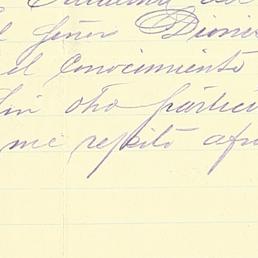 l Señor Dioni
el Conocimiento
Sin otro particu
me repito afn